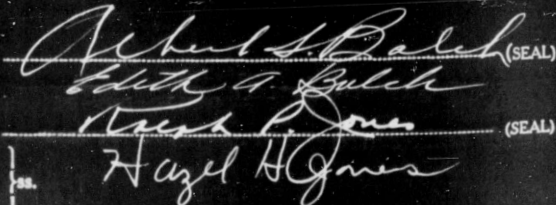 Albert S. Balch (SEAL)
Edith A. Balch
Ralph P. Jones (SEAL)
Hazel H Jones
ss.